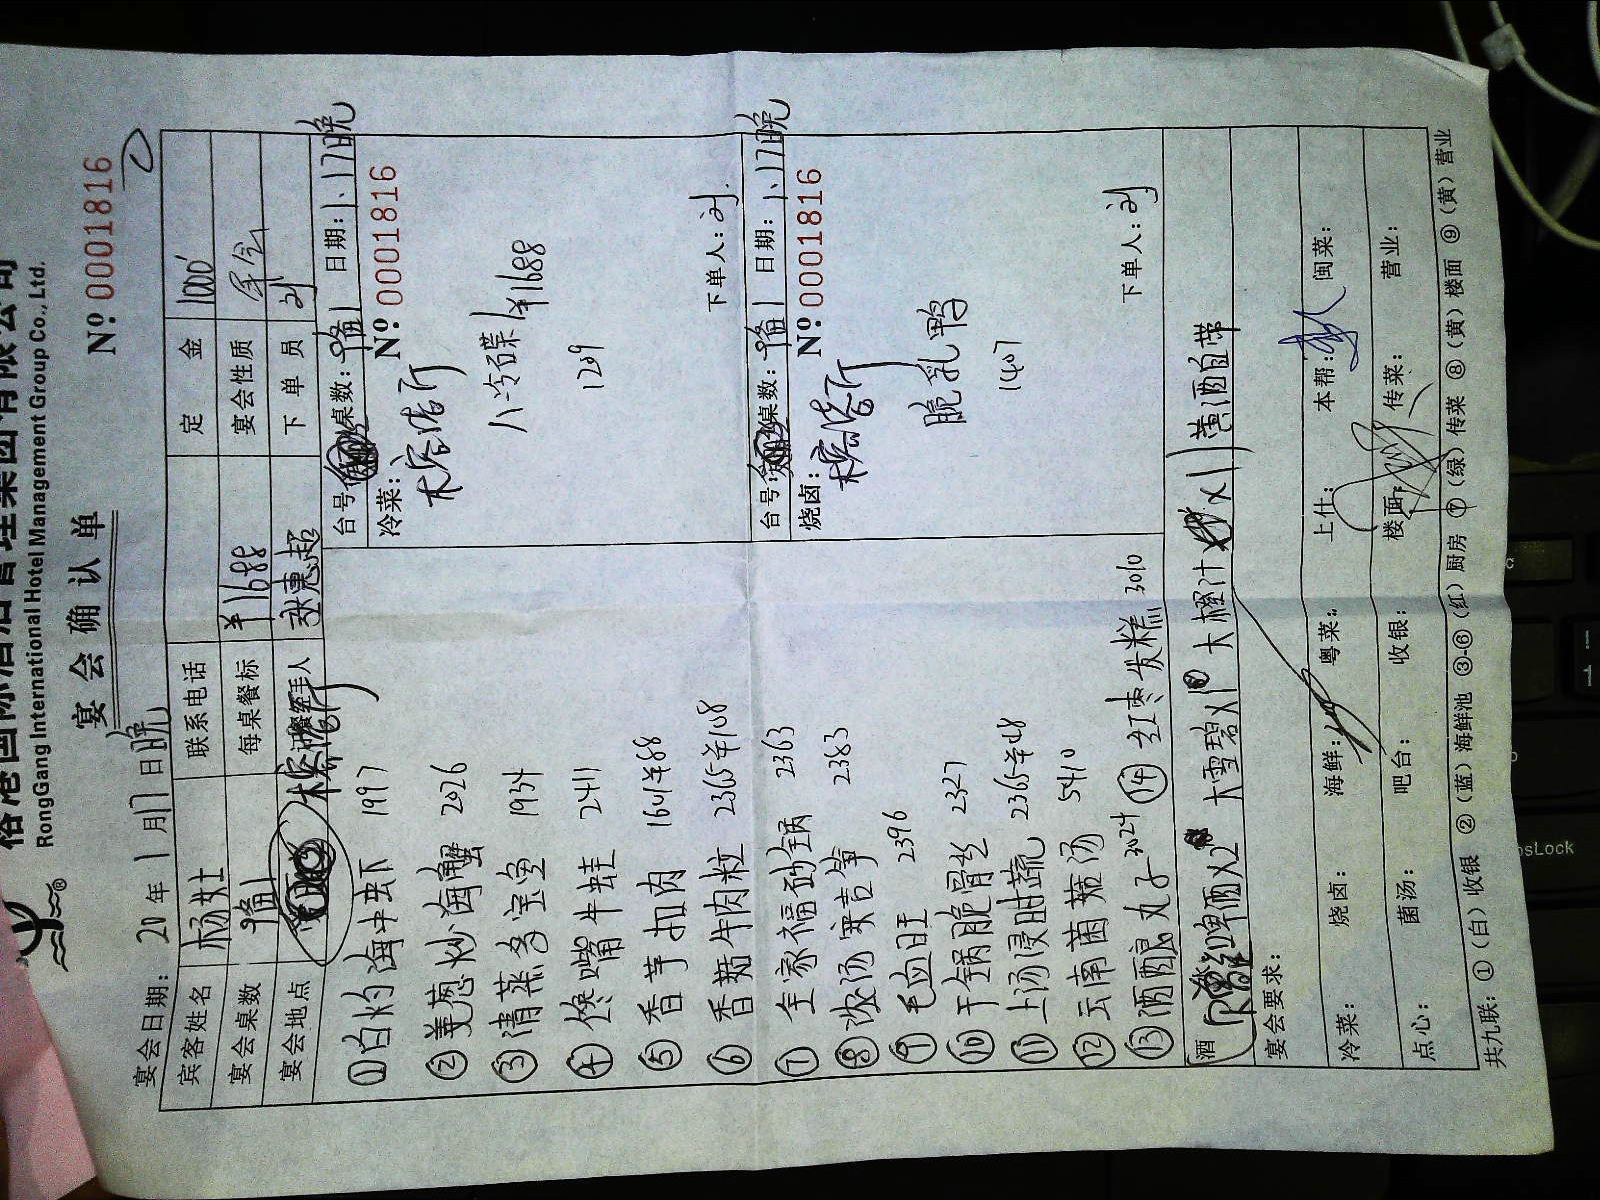 裕港国际酒店管理集团有限公司
RongGang International Hotel Management Group Co., Ltd.
宴会确认单
Nº 0001816
宴会日期: 20 年 1 月 17 日 晚
宾客姓名 杨女士 联系电话 定金 1000
宴会桌数 每桌餐标 ¥1688 宴会性质 年会
宴会地点 经手人 张惠超 下单员 刘
台号: 桌数: 日期: 1.17晚
冷菜: Nº 0001816
八冷碟 ¥1688
1209
下单人: 刘
台号: 桌数: 日期: 1.17晚
烧卤: Nº 0001816
脆乳鸭
1407
下单人: 刘
① 白灼海中虾 1997
② 姜葱炒海蟹 2026
③ 清蒸多宝鱼 1934
④ 馋嘴牛蛙 2411
⑤ 香芋扣肉 1641 ¥88
⑥ 香菇牛肉粒 2365 ¥108
⑦ 全家福砂锅 2363
⑧ 浓汤 笋 2383
⑨ 毛血旺 2396
⑩ 干锅脆骨 2327
⑪ 上汤浸时蔬 2365 ¥48
⑫ 云南菌菇汤 5410
⑬ 酒酿丸子 3024 ⑭ 红枣发糕 3010
酒 红啤酒x2 大雪碧x1 大橙汁x1 黄酒自带
宴会要求:
冷菜: 烧卤: 海鲜: 粤菜: 上仕: 本帮: 闽菜:
点心: 菌汤: 吧台: 收银: 楼面: 传菜: 营业:
共九联: ①(白)收银 ②(蓝)海鲜池 ③-⑥(红)厨房 ⑦(绿)传菜 ⑧(黄)楼面 ⑨(黄)营业